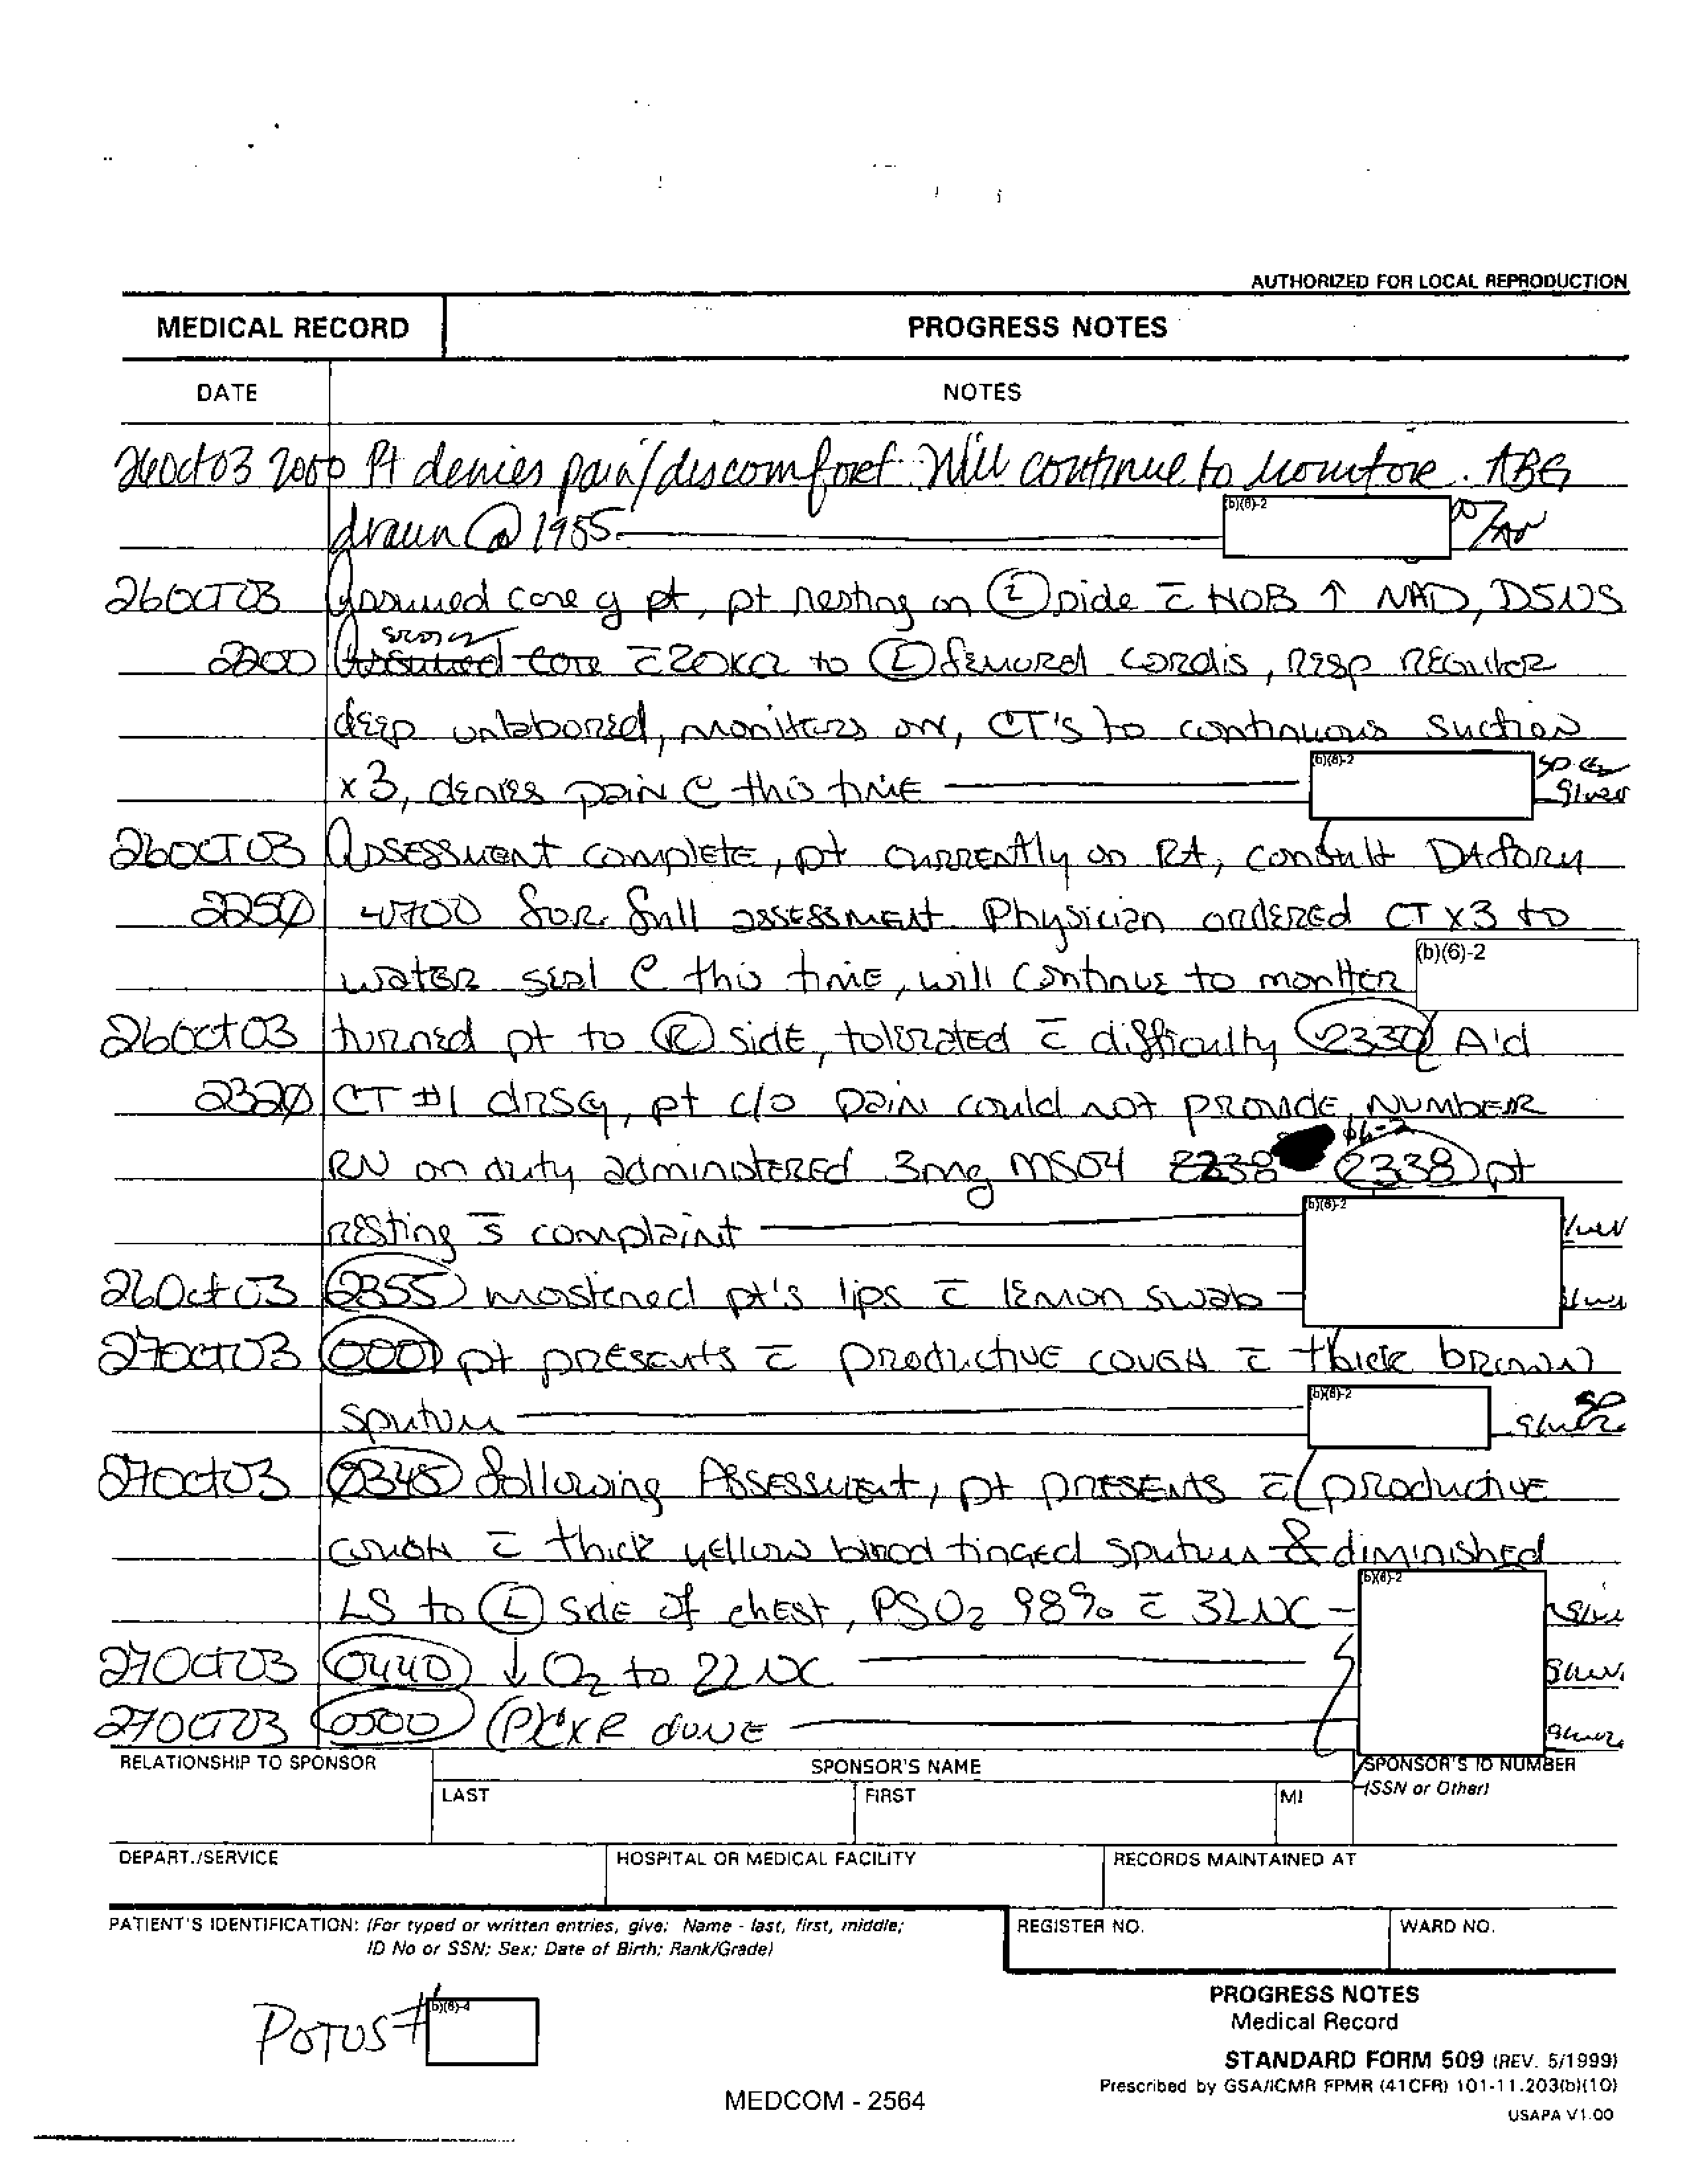 AUTHORIZED FOR LOCAL REPRODUCTION
MEDICAL RECORD PROGRESS NOTES
DATE NOTES
26Oct03 2000 Pt denies pain/discomfort. Will continue to monitor. ABG
(b)(6)-2
drawn @ 1955.
26OCT03 Assumed care of pt, pt resting on side c̄ HOB ↑ NAD, D5NS
2200 Assumed care c̄ 20KCl to Ⓛ femoral cordis, resp regular
deep unlabored, monitors on, CT's to continuous suction
(b)(6)-2
x3, denies pain @ this time
26OCT03 Assessment complete, pt currently on RA, consult
2250 4700 for full assessment. Physician ordered CT x3 to
water seal @ this time, will continue to monitor (b)(6)-2
26Oct03 turned pt to Ⓡ side, tolerated c̄ difficulty 2330 A'd
2320 CT #1 drsg, pt c/o pain could not provide number
b6-2
RN on duty administered 3mg MSO4 2238 2338 pt
(b)(6)-2
resting s̄ complaint
26Oct03 2355 mostened pt's lips c̄ lemon swab
27OCT03 0001 pt presents c̄ productive cough c̄ thick brown
(b)(6)-2
sputum
27Oct03 0345 following Assessment, pt presents c̄ productive
cough c̄ thick yellow blood tinged sputum & diminished
(b)(6)-2
LS to Ⓛ side of chest, PSO2 98% c̄ 3L NC
27OCT03 0440 ↓ O2 to 2L NC
27OCT03 0500 PCXR done
RELATIONSHIP TO SPONSOR SPONSOR'S NAME SPONSOR'S ID NUMBER
LAST FIRST MI (SSN or Other)
DEPART./SERVICE HOSPITAL OR MEDICAL FACILITY RECORDS MAINTAINED AT
PATIENT'S IDENTIFICATION: (For typed or written entries, give: Name - last, first, middle; REGISTER NO. WARD NO.
ID No or SSN; Sex; Date of Birth; Rank/Grade)
POTUS # (b)(6)-4
PROGRESS NOTES
Medical Record
STANDARD FORM 509 (REV. 5/1999)
Prescribed by GSA/ICMR FPMR (41CFR) 101-11.203(b)(10)
USAPA V1.00
MEDCOM - 2564